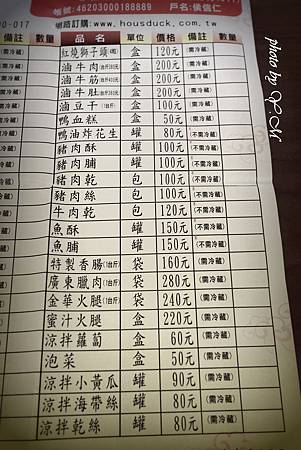 帳號:46203000188889 戶名:侯信仁
網路訂購:www.housduck.com.tw
00-017
備註 數量 品名 單位 價格 備註 數量
(需冷藏) 紅燒獅子頭 盒 120元 (需冷藏)
(需冷藏) 滷牛肉 盒 200元 (需冷藏)
(需冷藏) 滷牛筋 盒 200元 (需冷藏)
(需冷藏) 滷牛肚 盒 200元 (需冷藏)
(需冷藏) 滷豆干 盒 100元 (需冷藏)
(需冷藏) 鴨血糕 盒 50元 (需冷藏)
(需冷藏) 鴨油炸花生 罐 80元 (不需冷藏)
(需冷藏) 豬肉酥 罐 100元 (不需冷藏)
(需冷藏) 豬肉脯 罐 100元 (不需冷藏)
(需冷藏) 豬肉乾 包 100元 (不需冷藏)
(需冷藏) 豬肉絲 包 100元 (不需冷藏)
(需冷藏) 牛肉乾 包 120元 (不需冷藏)
(需冷藏) 魚酥 罐 150元 (不需冷藏)
(需冷藏) 魚脯 罐 150元 (不需冷藏)
(需冷藏) 特製香腸(1台斤) 袋 160元 (需冷藏)
(需冷藏) 廣東臘肉(1台斤) 袋 280元 (需冷藏)
金華火腿(1台斤) 袋 240元 (需冷藏)
蜜汁火腿 盒 220元 (需冷藏)
涼拌蘿蔔 盒 60元 (需冷藏)
泡菜 盒 50元 (需冷藏)
涼拌小黃瓜 罐 90元 (需冷藏)
涼拌海帶絲 罐 80元 (需冷藏)
涼拌乾絲 罐 80元 (需冷藏)
photo by